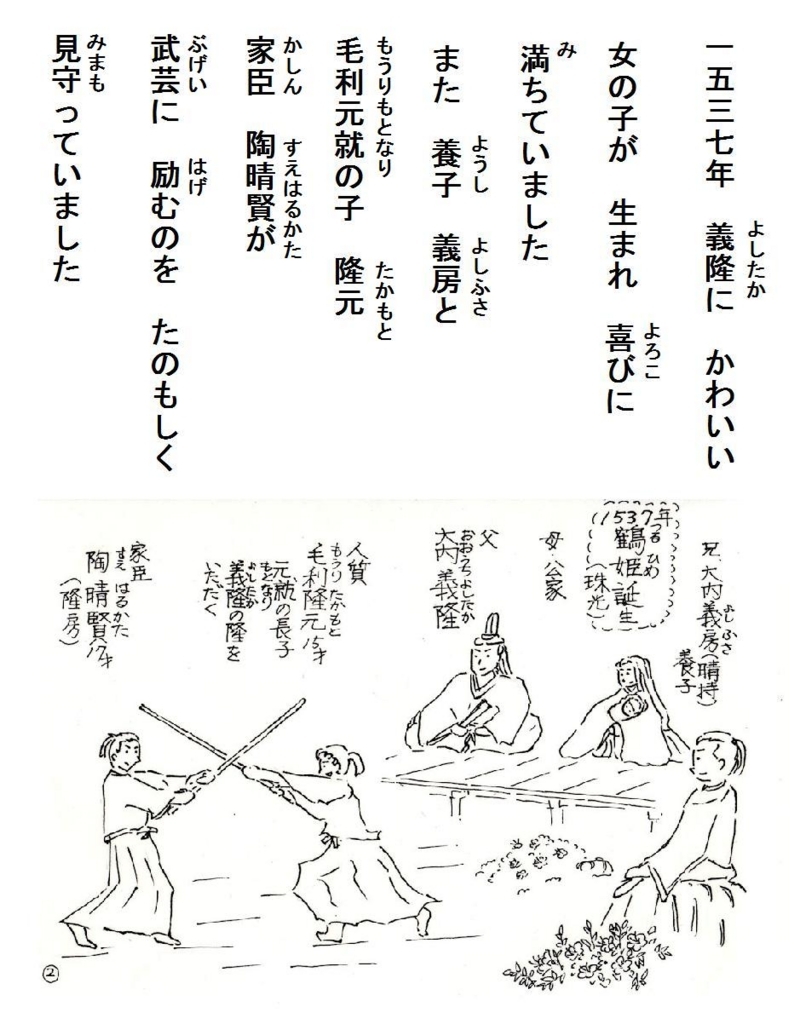 一五三七年 義隆に かわいい
よしたか
女の子が 生まれ 喜びに
よろこ
満ちていました
み
また 養子 義房と
ようし よしふさ
毛利元就の子 隆元
もうりもとなり たかもと
家臣 陶晴賢が
かしん すえはるかた
武芸に 励むのを たのもしく
ぶげい はげ
見守っていました
みまも
兄 大内義房(晴持)
よしふさ
養子
1537年
鶴姫誕生
つる ひめ
(珠光)
母・公家
父
大内義隆
おおうちよしたか
人質
毛利隆元15才
もうりたかもと
元就の長子
もとなり
義隆の隆を
よしたか
いただく
家臣
陶晴賢17才
すえ はるかた
(隆房)
②